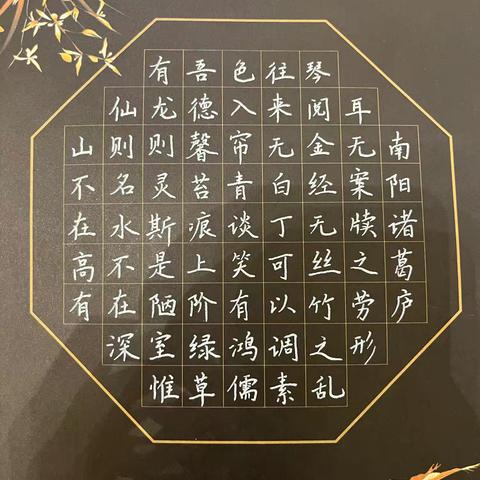 山不在高有
仙则名水不在深
有龙则灵斯是陋室惟
吾德馨苔痕上阶绿草
色入帘青谈笑有鸿儒
往来无白丁可以调素
琴阅金经无丝竹之乱
耳无案牍之劳形
南阳诸葛庐